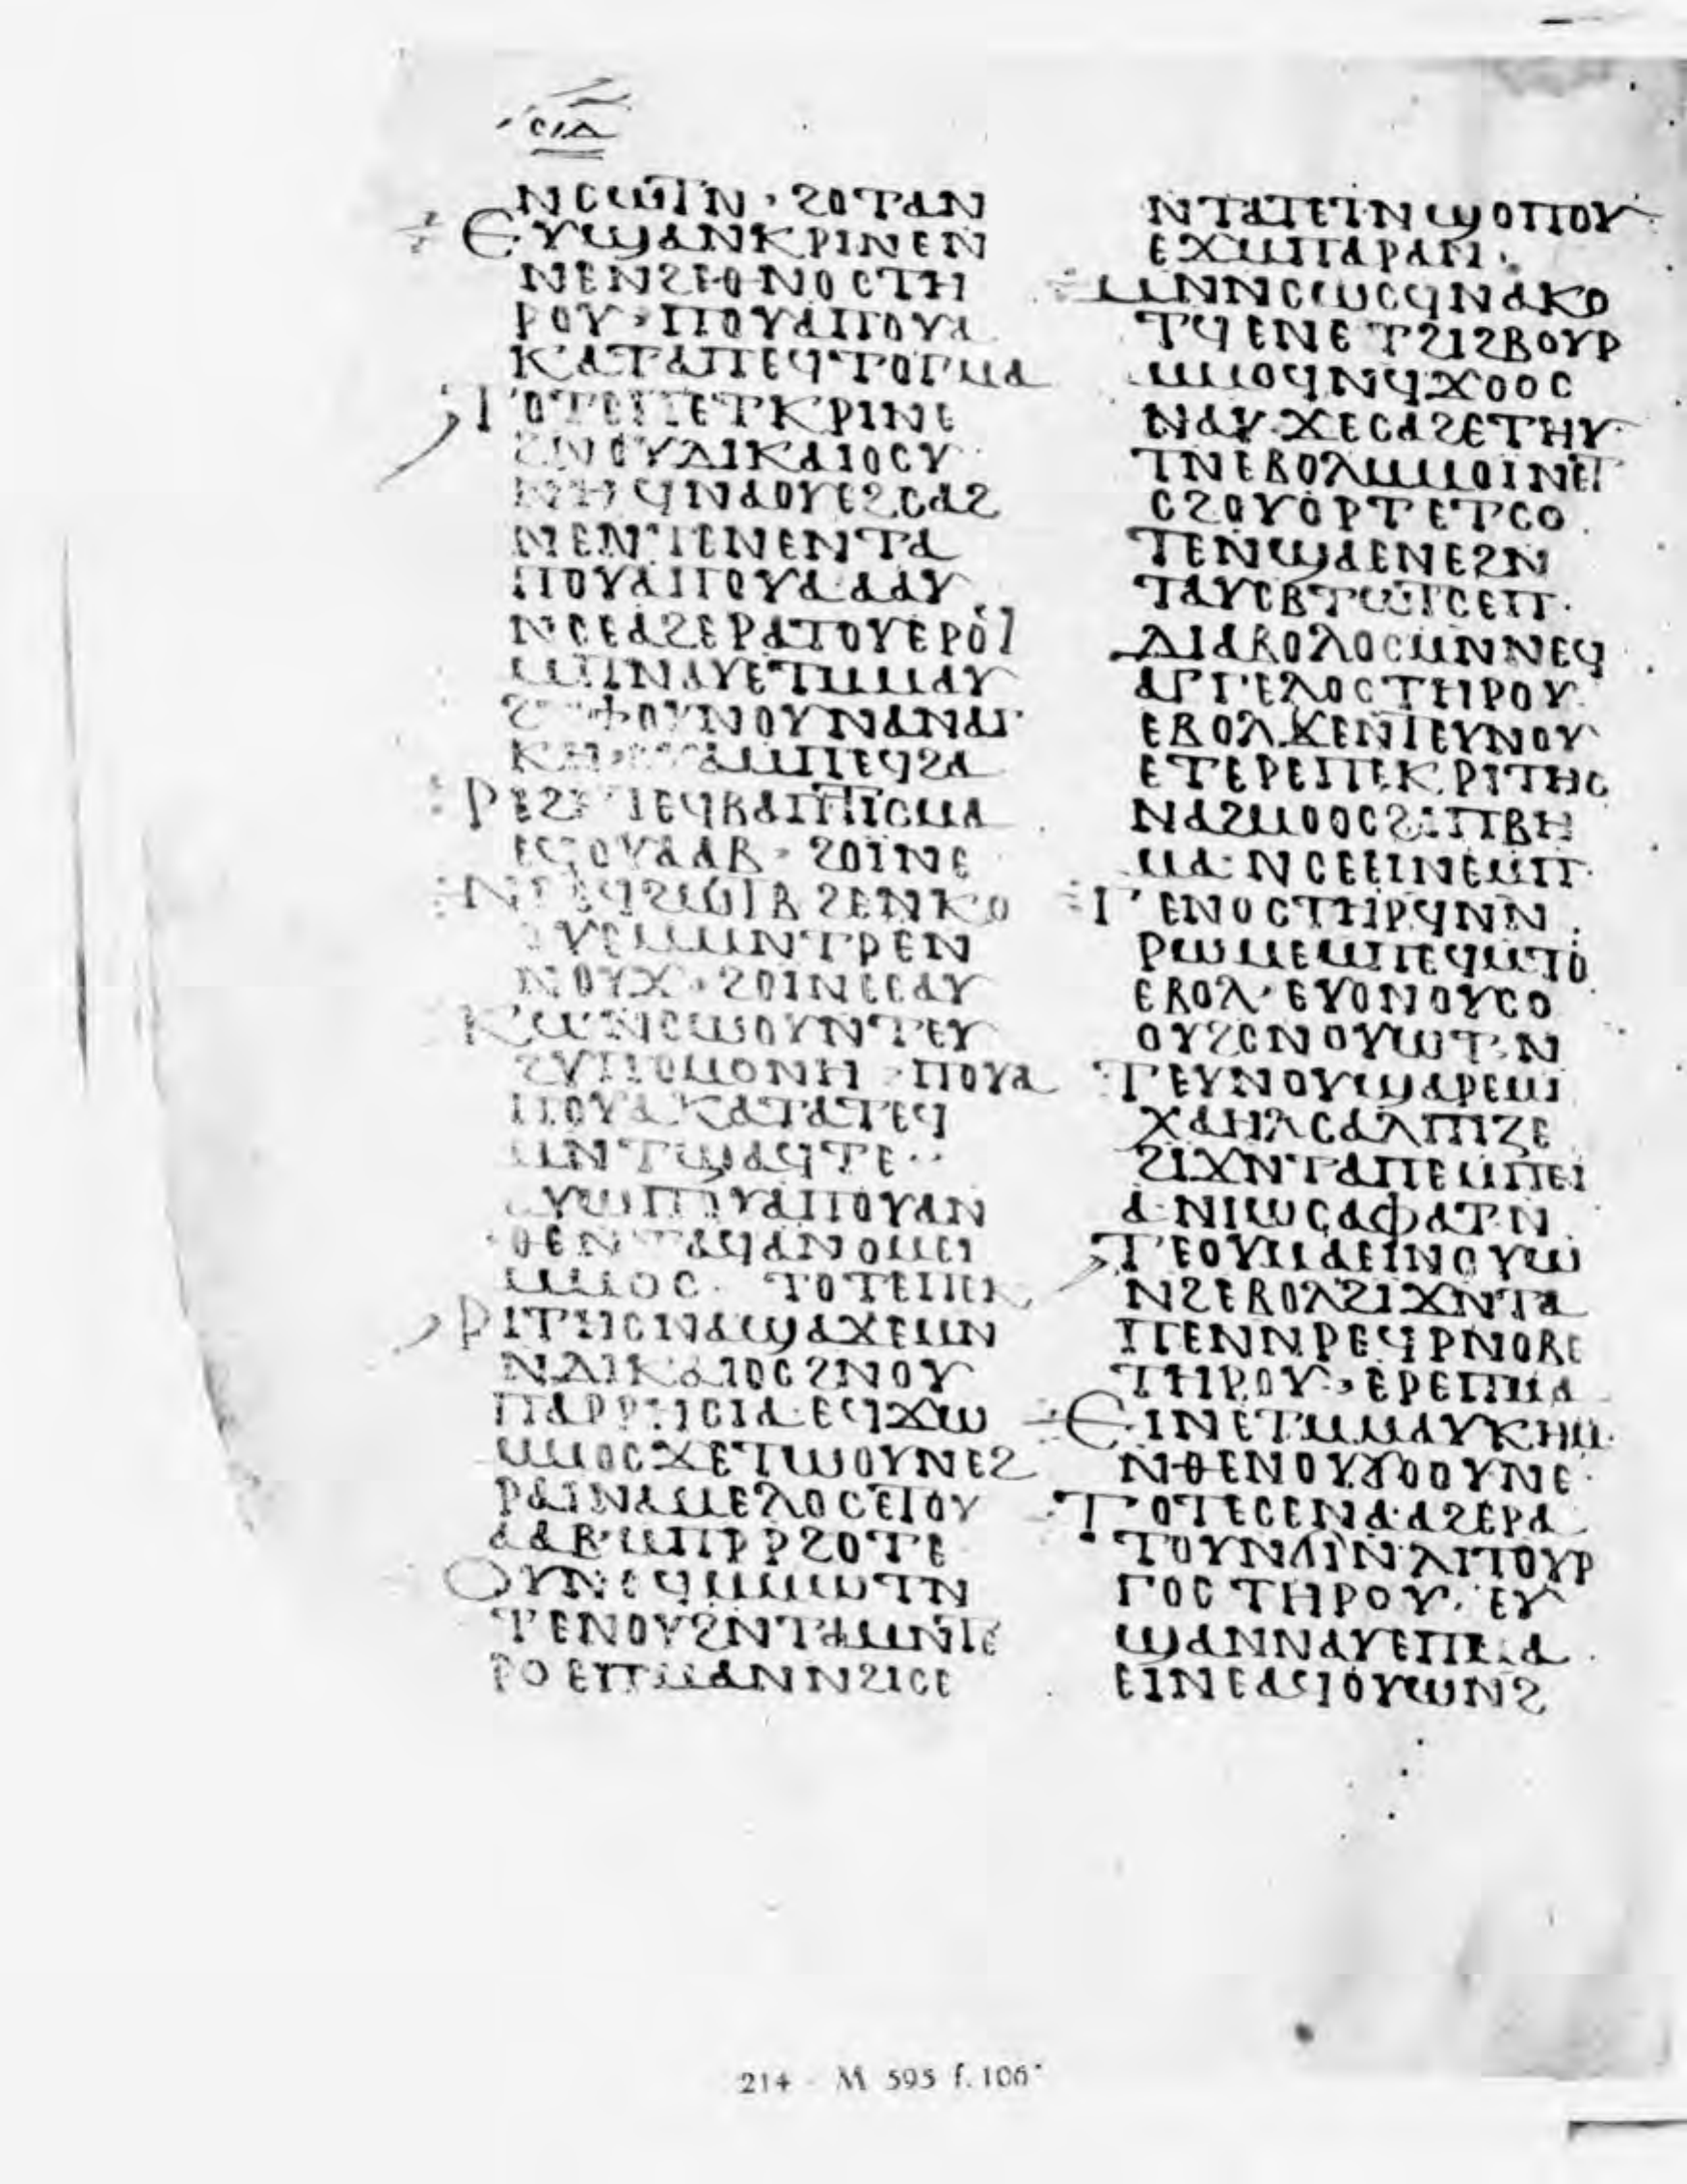 ⲥⲓⲇ
ⲛⲥⲱⲧⲛ · ϩⲟⲧⲁⲛ
ⲉⲩϣⲁⲛⲕⲣⲓⲛⲉⲛ
ⲛⲉⲛϩⲉⲑⲛⲟⲥⲧⲏ
ⲣⲟⲩ · ⲡⲟⲩⲁⲡⲟⲩⲁ
ⲕⲁⲧⲁⲡⲉϥⲧⲟⲅⲙⲁ
ⲧⲟⲧⲉⲡⲉⲧⲕⲣⲓⲛⲉ
ϩⲛⲟⲩⲇⲓⲕⲁⲓⲟⲥⲩ
ⲛⲏ ϥⲛⲁⲟⲩⲉϩⲥⲁϩ
ⲛⲉ ⲛⲧⲉⲛⲉⲛⲧⲁ
ⲡⲟⲩⲁⲡⲟⲩⲁ ⲁⲁⲩ
ⲛⲥⲉⲁϩⲉⲣⲁⲧⲟⲩⲉⲣⲟϥ
ⲙⲡⲛⲁⲩⲉⲧⲙⲙⲁⲩ
ⲛⲟⲩⲛⲁⲛⲁⲅ
ⲕⲏ · ⲙⲡⲉϥϩⲁ
ⲣⲉϩ ⲉⲡⲉϥⲃⲁⲡⲧⲓⲥⲙⲁ
ⲉⲧⲟⲩⲁⲁⲃ · ϩⲟⲓⲛⲉ
ⲛⲉϥϩⲱⲧⲃ ϩⲉⲛⲕⲟ
ⲟⲩⲉⲙⲙⲛⲧⲣⲉⲛ
ⲛⲟⲩϫ · ϩⲟⲓⲛⲉⲉⲁⲩ
ⲕⲱⲛⲥⲱⲟⲩⲛⲧⲉⲩ
ϩⲩⲡⲟⲙⲟⲛⲏ · ⲡⲟⲩⲁ
ⲡⲟⲩⲁ ⲕⲁⲧⲁⲧⲉϥ
ⲙⲛⲧϣⲁϥⲧⲉ ··
ⲡⲟⲩⲁⲡⲟⲩⲁⲛ
ⲑⲉⲛⲧⲁϥⲁⲛⲟⲙⲉⲓ
ⲙⲙⲟⲥ · ⲧⲟⲧⲉⲡⲉⲕ
ⲣⲓⲧⲏⲥⲛⲁϣⲁϫⲉⲙⲛ
ⲛⲇⲓⲕⲁⲓⲟⲥϩⲛⲟⲩ
ⲡⲁⲣⲣⲏⲥⲓⲁ · ⲉϥϫⲱ
ⲙⲙⲟⲥϫⲉⲧⲱⲟⲩⲛⲉϩ
ⲣⲁⲓⲛⲁⲙⲉⲗⲟⲥⲉⲧⲟⲩ
ⲁⲁⲃ · ⲙⲡⲣⲣϩⲟⲧⲉ
ⲟⲩⲛⲟϥⲙⲙⲱⲧⲛ
ⲧⲉⲛⲟⲩϩⲛⲧⲁⲙⲛⲧⲉ
ⲣⲟ ⲉⲡⲙⲁⲛⲛϩⲓⲥⲉ
ⲛⲧⲁⲧⲉⲧⲛϣⲟⲡⲟⲩ
ⲉϫⲙⲡⲁⲣⲁⲛ ·
ⲙⲛⲛⲥⲱⲥϥⲛⲁⲕⲟ
ⲧϥ ⲉⲛⲉⲧϩⲓϩⲃⲟⲩⲣ
ⲙⲙⲟϥⲛϥϫⲟⲟⲥ
ⲛⲁⲩ · ϫⲉⲥⲁϩⲉⲧⲏⲩ
ⲧⲛⲉⲃⲟⲗⲙⲙⲟⲓⲛⲉⲧ
ⲥϩⲟⲩⲟⲣⲧ ⲉⲧⲥⲟ
ⲧⲉⲛϣⲁⲉⲛⲉϩⲛ
ⲧⲁⲩⲥⲃⲧⲱⲧⲥⲉⲡ ·
ⲇⲓⲁⲃⲟⲗⲟⲥⲙⲛⲛⲉϥ
ⲁⲅⲅⲉⲗⲟⲥⲧⲏⲣⲟⲩ
ⲉⲃⲟⲗϫⲉⲛⲧⲉⲩⲛⲟⲩ
ⲉⲧⲉⲣⲉⲡⲉⲕⲣⲓⲧⲏⲥ
ⲛⲁϩⲙⲟⲟⲥϩⲓⲡⲃⲏ
ⲙⲁ · ⲛⲥⲉⲉⲓⲛⲉⲙⲡ
ⲅⲉⲛⲟⲥⲧⲏⲣϥⲛⲛ
ⲣⲱⲙⲉⲙⲡⲉϥⲙⲧⲟ
ⲉⲃⲟⲗ · ⲉⲩⲟⲛⲟⲩⲥⲟ
ⲟⲩϩⲥⲛⲟⲩⲱⲧ · ⲛ
ⲧⲉⲩⲛⲟⲩϣⲁⲣⲉⲙⲓ
ⲭⲁⲏⲗⲥⲁⲗⲡⲓⲍⲉ
ϩⲓϫⲛⲧⲁⲡⲉⲙⲡⲉⲓ
ⲁ · ⲛⲓⲱⲥⲁⲫⲁⲧ · ⲛ
ⲧⲉⲟⲩⲙⲁⲉⲓⲛⲟⲩⲱ
ⲛϩⲉⲃⲟⲗϩⲓϫⲛⲧⲁ
ⲡⲉⲛⲛⲣⲉϥⲣⲛⲟⲃⲉ
ⲧⲏⲣⲟⲩ · ⲉⲣⲉⲡⲙⲁ
ⲉⲓⲛⲉⲧⲙⲙⲁⲩⲕⲏⲙ
ⲛⲑⲉⲛⲟⲩϭⲟⲟⲩⲛⲉ ·
ⲧⲟⲧⲉⲥⲉⲛⲁ · ⲁϩⲉⲣⲁ
ⲧⲟⲩⲛϭⲓⲛ · ⲗⲓⲧⲟⲩⲣ
ⲅⲟⲥ ⲧⲏⲣⲟⲩ · ⲉⲩ
ϣⲁⲛⲛⲁⲩⲉⲡⲙⲁ
ⲉⲓⲛⲉⲁϥⲟⲩⲱⲛϩ
214 - M 595 f. 106ᵛ